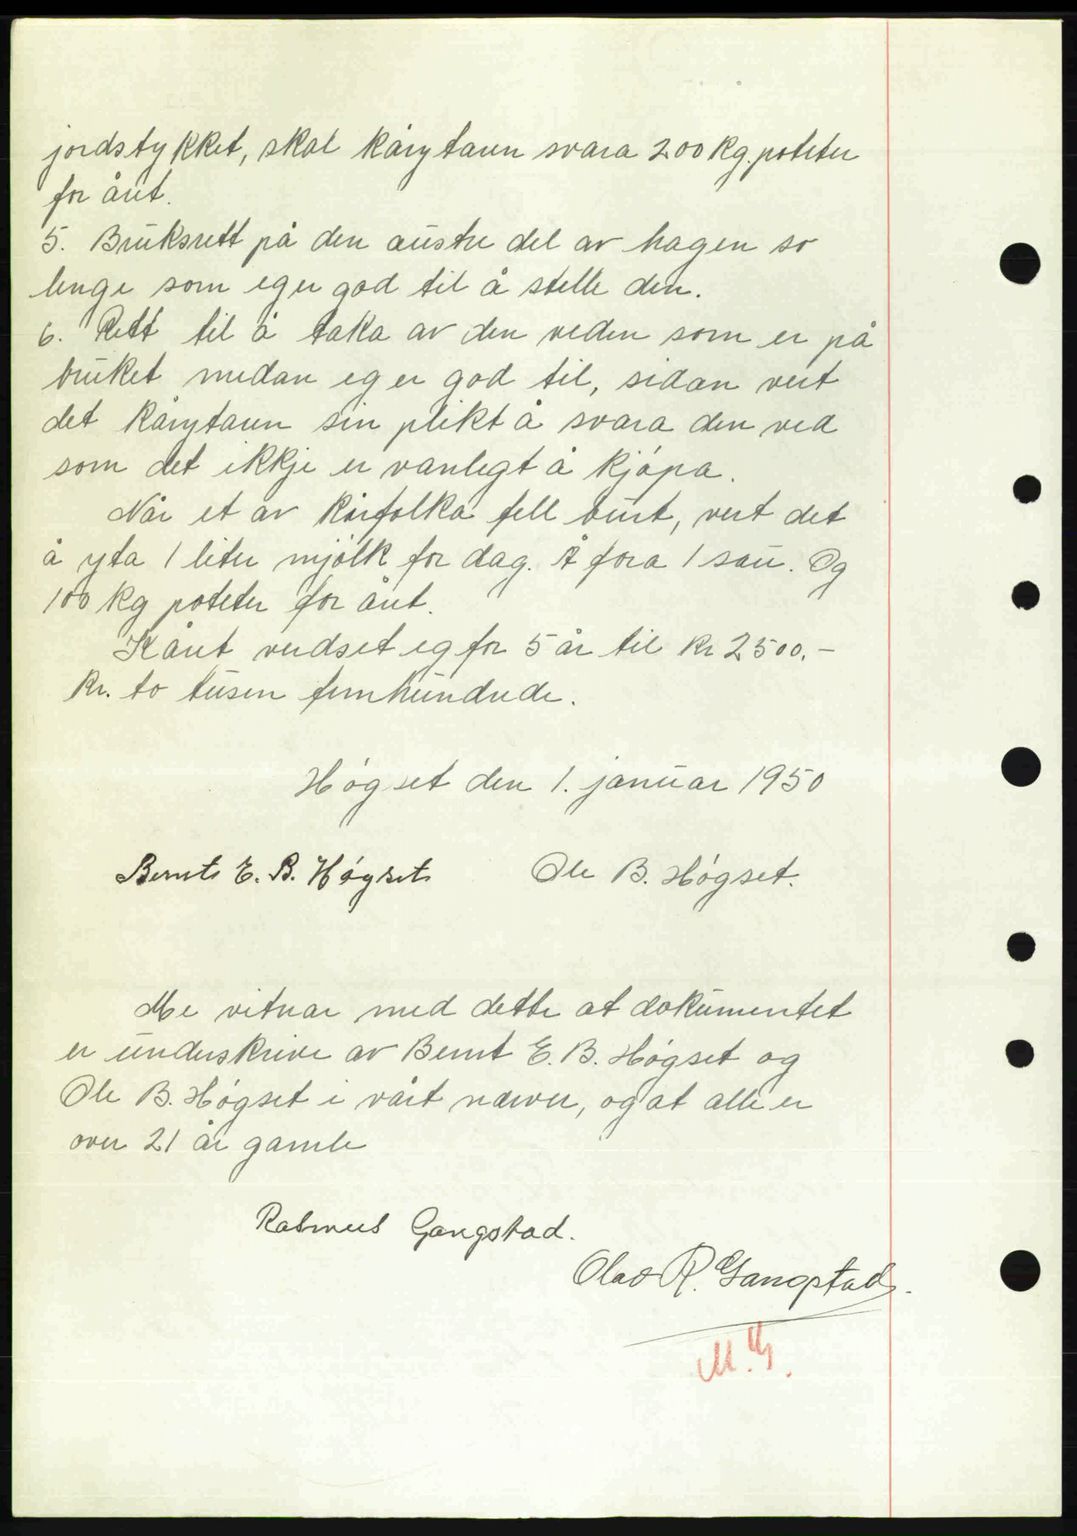 jordstykket, skal kårytaren svara 200 kg. poteter
for året.
5. Bruksrett på den austre del av hagen so
lenge som eg er god til å stelle den.
6. Rett til å taka av den veden som er på
bruket medan eg er god til, sidan vert
det kårytaren sin plikt å svara den ved
som det ikkje er vanlegt å kjöpa.
Når et av kårfolka fell burt, vert det
å yta 1 liter mjölk for dag. Å fora 1 sau. Og
100 kg poteter for året.
Kåret verdset eg for 5 år til kr 2500.-
kr. to tusen femhundrede.
Högset den 1. januar 1950
Bernt E. B. Högset Ole B. Högset.
Me vitnar med dette at dokumentet
er underskrive av Bernt E. B. Högset og
Ole B. Högset i vårt nærver, og at alle er
over 21 år gamle
Rasmus Gangstad.
Olav R. Gangstad.
M.G.